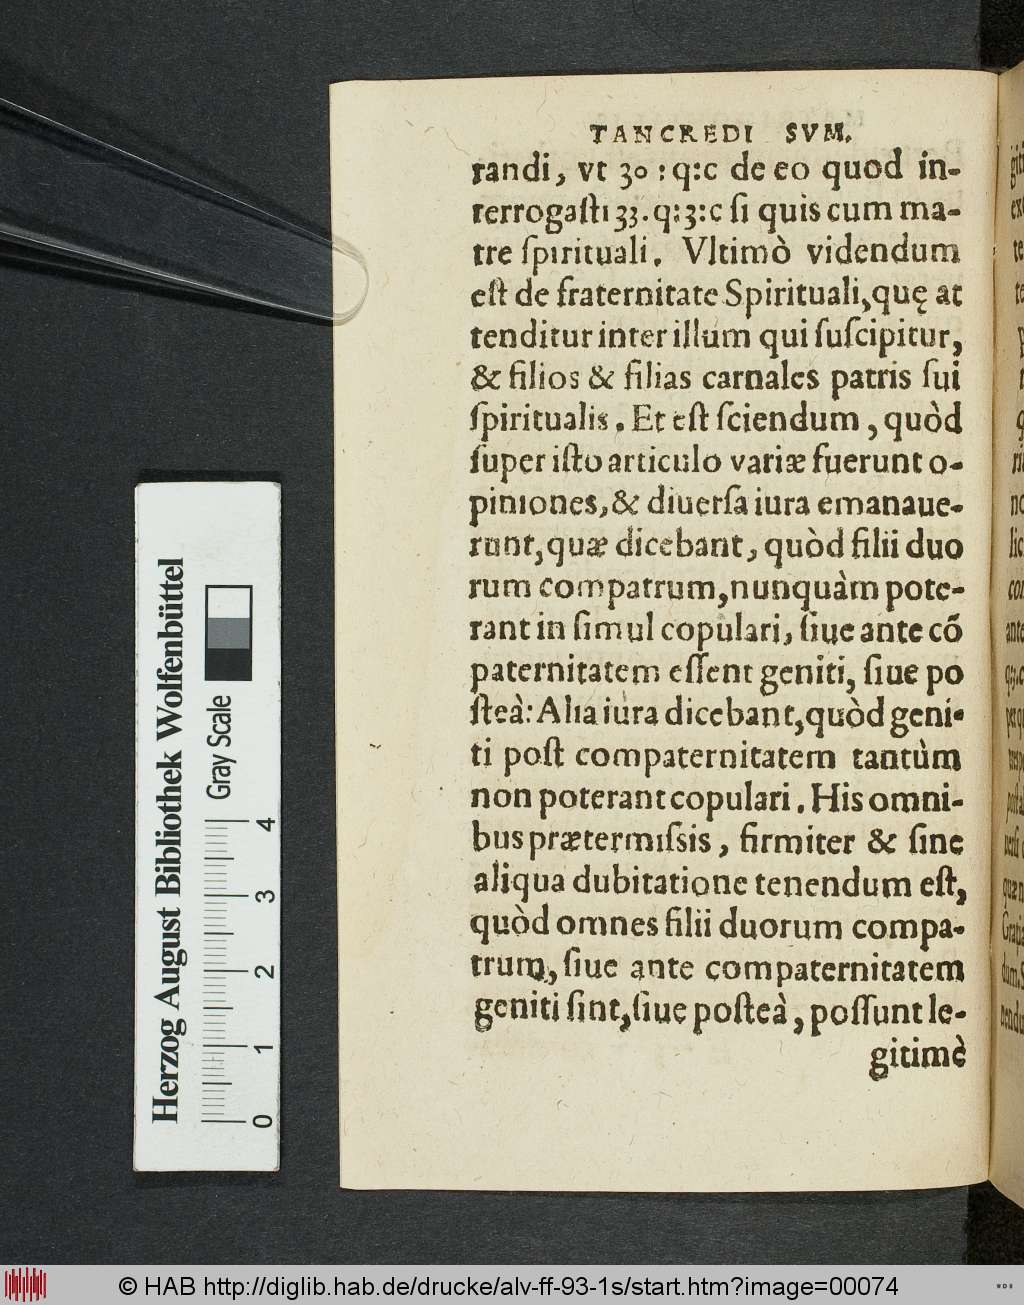 TANCREDI SVM.
randi, vt 30 : q:c de eo quod in-
terrogaſti 33. q:3:c ſi quis cum ma-
tre ſpirituali. Vltimò videndum
eſt de fraternitate Spirituali, quę at
tenditur inter illum qui ſuſcipitur,
& filios & filias carnales patris ſui
ſpiritualis. Et eſt ſciendum, quòd
ſuper iſto articulo variæ fuerunt o-
piniones, & diuerſa iura emanaue-
runt, quæ dicebant, quòd filii duo
rum compatrum, nunquàm pote-
rant in ſimul copulari, ſiue ante cõ
paternitatem eſſent geniti, ſiue po
ſteà: Alia iura dicebant, quòd geni-
ti poſt compaternitatem tantùm
non poterant copulari. His omni-
bus prætermiſsis, firmiter & ſine
aliqua dubitatione tenendum eſt,
quòd omnes filii duorum compa-
trum, ſiue ante compaternitatem
geniti ſint, ſiue poſteà, poſſunt le-
gitimè
Herzog August Bibliothek Wolfenbüttel
Gray Scale
0 1 2 3 4
© HAB http://diglib.hab.de/drucke/alv-ff-93-1s/start.htm?image=00074